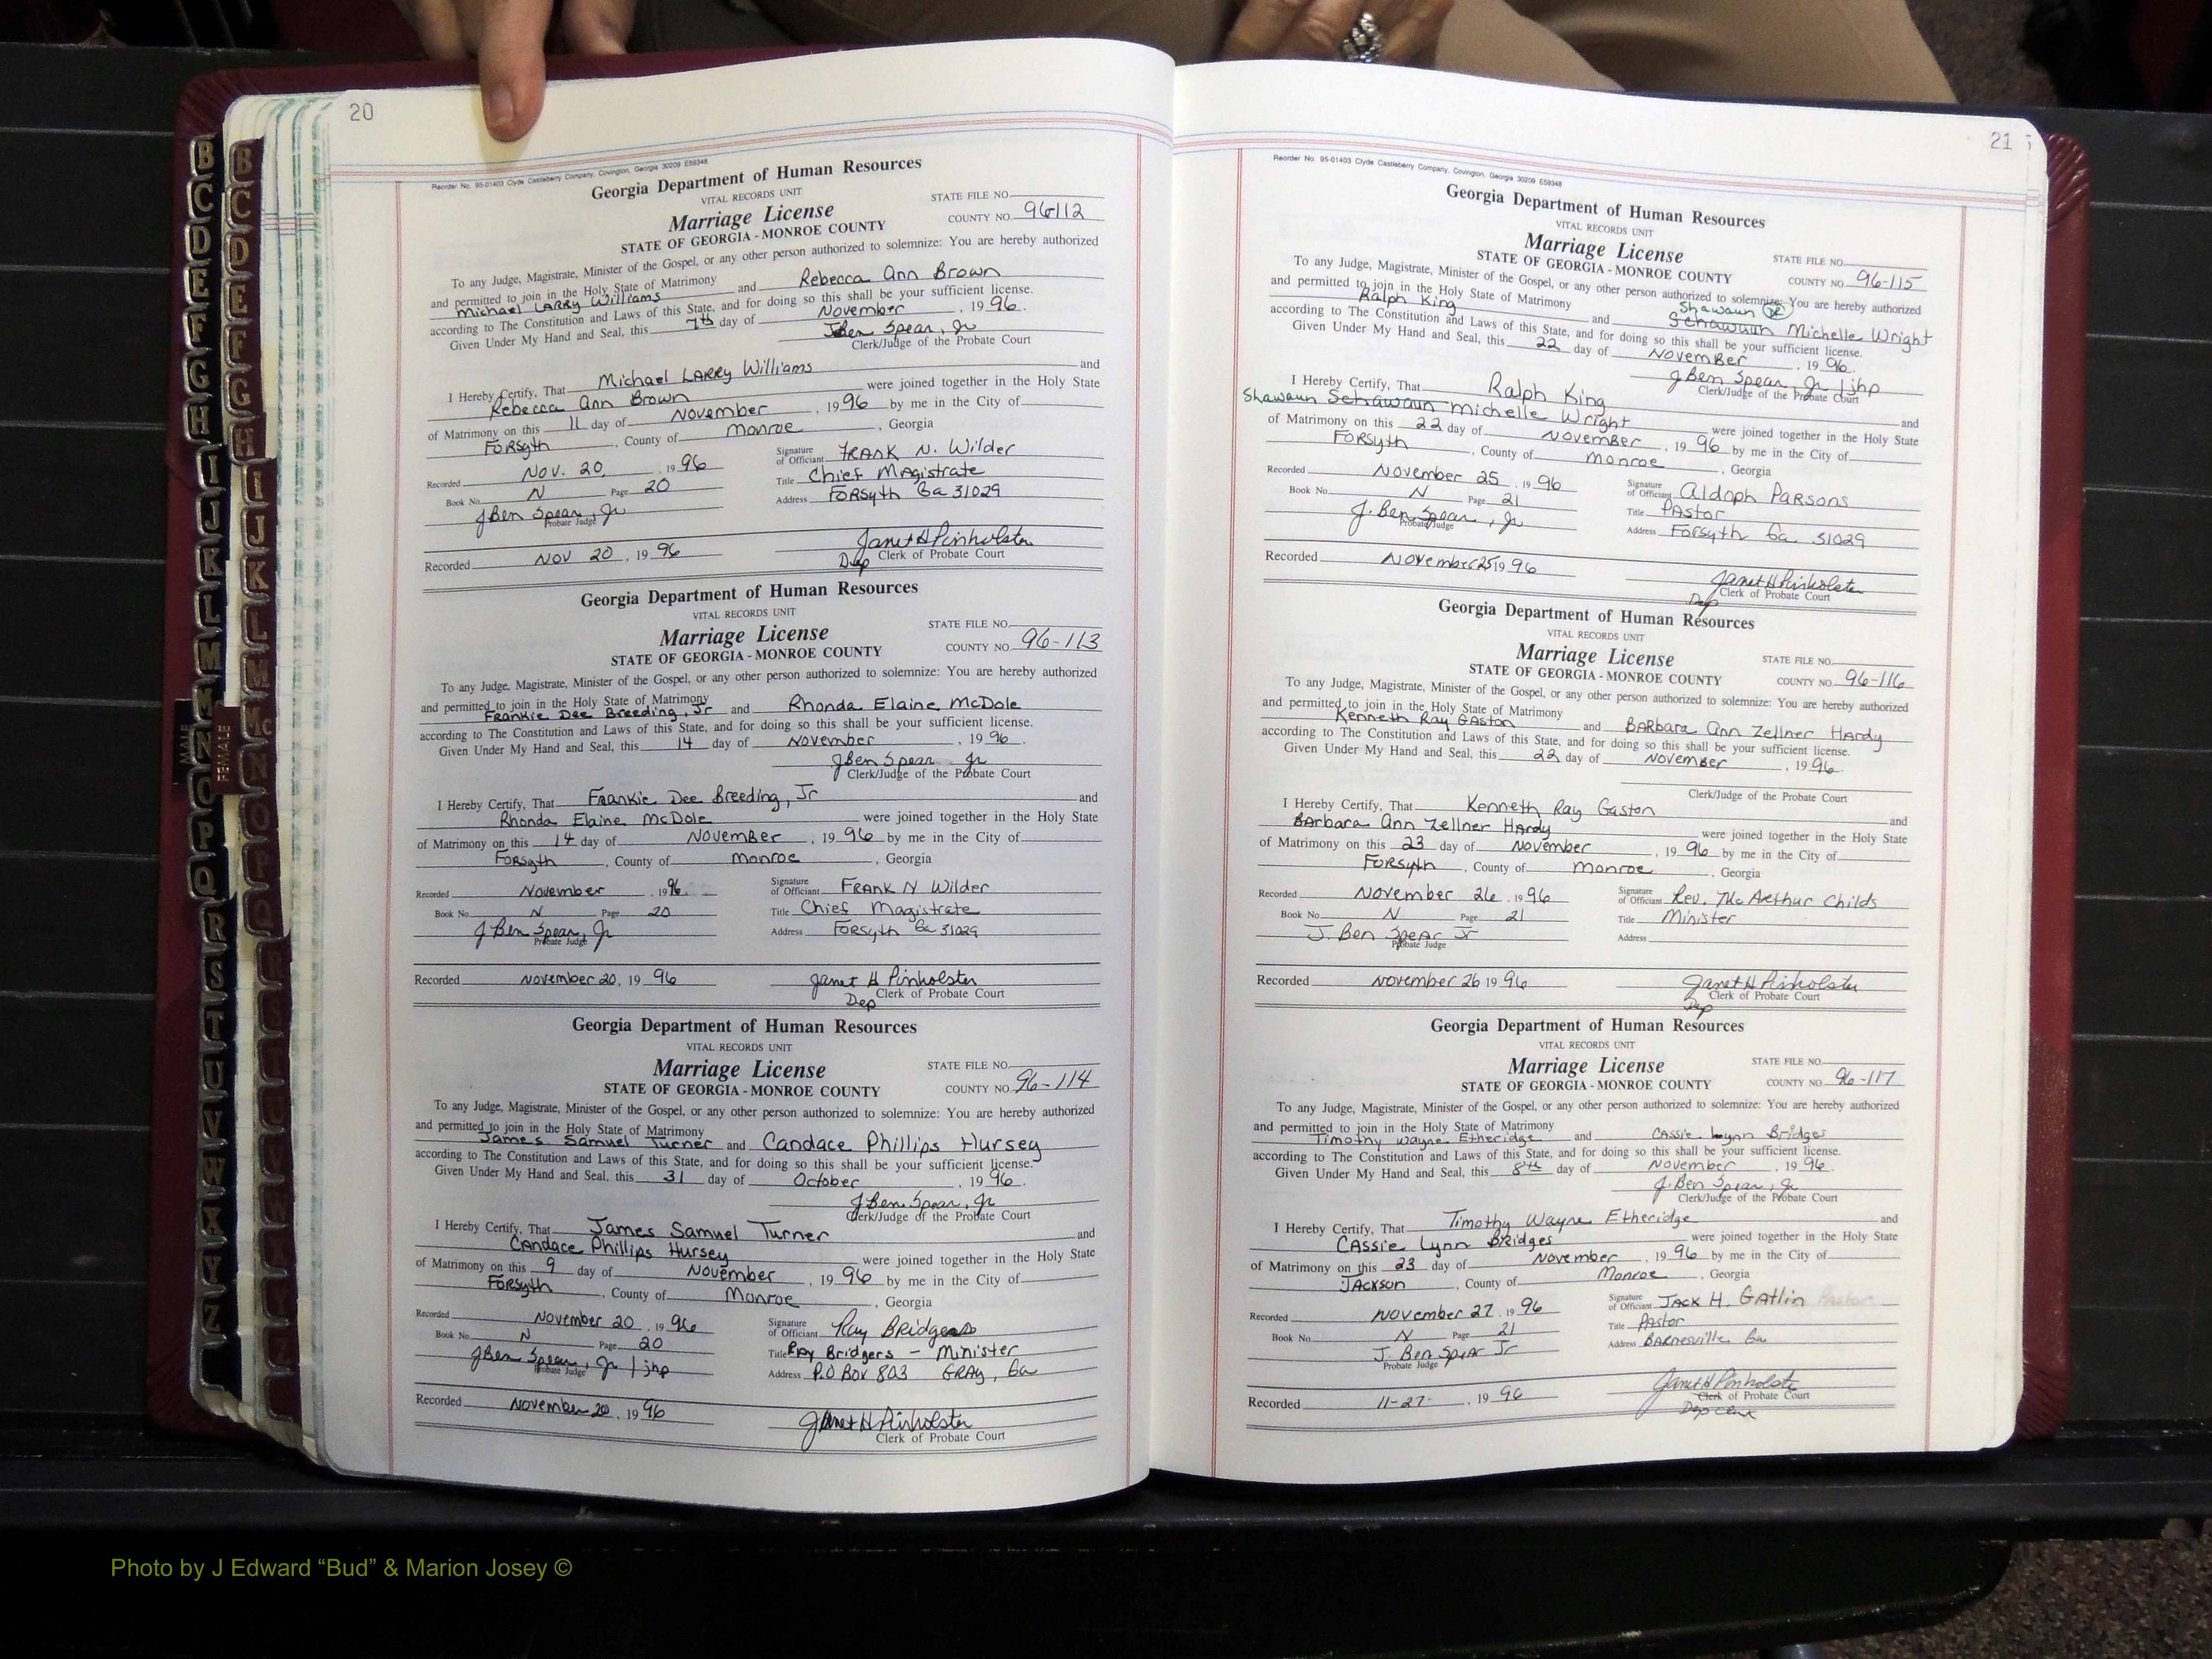 20
Reorder No. 95-01403 Clyde Castleberry Company, Covington, Georgia 30209 E59348
Georgia Department of Human Resources
VITAL RECORDS UNIT
STATE FILE NO.
Marriage License
COUNTY NO. 96-112
STATE OF GEORGIA - MONROE COUNTY
To any Judge, Magistrate, Minister of the Gospel, or any other person authorized to solemnize: You are hereby authorized
and permitted to join in the Holy State of Matrimony
Michael LARRY Williams and Rebecca Ann Brown
according to The Constitution and Laws of this State, and for doing so this shall be your sufficient license.
Given Under My Hand and Seal, this 7th day of November, 1996.
J Ben Spear, Jr
Clerk/Judge of the Probate Court
I Hereby Certify, That Michael LARRY Williams and
Rebecca Ann Brown were joined together in the Holy State
of Matrimony on this 11 day of November, 1996 by me in the City of
Forsyth, County of Monroe, Georgia
Recorded Nov. 20, 1996
Signature of Officiant FRANK N. Wilder
Book No. N Page 20
Title Chief Magistrate
J Ben Spear, Jr
Probate Judge
Address Forsyth Ga 31029
Recorded Nov 20, 1996
Janet H Pinholster
Dep Clerk of Probate Court
Georgia Department of Human Resources
VITAL RECORDS UNIT
STATE FILE NO.
Marriage License
COUNTY NO. 96-113
STATE OF GEORGIA - MONROE COUNTY
To any Judge, Magistrate, Minister of the Gospel, or any other person authorized to solemnize: You are hereby authorized
and permitted to join in the Holy State of Matrimony
Frankie Dee Breeding, Jr and Rhonda Elaine McDole
according to The Constitution and Laws of this State, and for doing so this shall be your sufficient license.
Given Under My Hand and Seal, this 14 day of November, 1996.
J Ben Spear Jr
Clerk/Judge of the Probate Court
I Hereby Certify, That Frankie Dee Breeding, Jr and
Rhonda Elaine McDole were joined together in the Holy State
of Matrimony on this 14 day of November, 1996 by me in the City of
Forsyth, County of Monroe, Georgia
Recorded November, 1996
Signature of Officiant FRANK N Wilder
Book No. N Page 20
Title Chief Magistrate
J Ben Spear, Jr
Probate Judge
Address Forsyth Ga 31029
Recorded November 20, 1996
Janet H Pinholster
Dep Clerk of Probate Court
Georgia Department of Human Resources
VITAL RECORDS UNIT
STATE FILE NO.
Marriage License
COUNTY NO. 96-114
STATE OF GEORGIA - MONROE COUNTY
To any Judge, Magistrate, Minister of the Gospel, or any other person authorized to solemnize: You are hereby authorized
and permitted to join in the Holy State of Matrimony
James Samuel Turner and Candace Phillips Hursey
according to The Constitution and Laws of this State, and for doing so this shall be your sufficient license.
Given Under My Hand and Seal, this 31 day of October, 1996.
J Ben Spear, Jr
Clerk/Judge of the Probate Court
I Hereby Certify, That James Samuel Turner and
Candace Phillips Hursey were joined together in the Holy State
of Matrimony on this 9 day of November, 1996 by me in the City of
Forsyth, County of Monroe, Georgia
Recorded November 20, 1996
Signature of Officiant Ray Bridgers
Book No. N Page 20
Title Ray Bridgers - Minister
J Ben Spear, Jr / jhp
Probate Judge
Address P.O Box 803 GRAY, Ga
Recorded November 20, 1996
Janet H Pinholster
Clerk of Probate Court
21
Reorder No. 95-01403 Clyde Castleberry Company, Covington, Georgia 30209 E59348
Georgia Department of Human Resources
VITAL RECORDS UNIT
Marriage License
STATE FILE NO.
STATE OF GEORGIA - MONROE COUNTY
COUNTY NO. 96-115
To any Judge, Magistrate, Minister of the Gospel, or any other person authorized to solemnize: You are hereby authorized
and permitted to join in the Holy State of Matrimony
Shawaun
Ralph King and Schawaun Michelle Wright
according to The Constitution and Laws of this State, and for doing so this shall be your sufficient license.
Given Under My Hand and Seal, this 22 day of November, 1996.
J Ben Spear, Jr / jhp
Clerk/Judge of the Probate Court
I Hereby Certify, That Ralph King and
Shawaun Schawaun Michelle Wright were joined together in the Holy State
of Matrimony on this 22 day of November, 1996 by me in the City of
Forsyth, County of Monroe, Georgia
Recorded November 25, 1996
Signature of Officiant Aldoph Parsons
Book No. N Page 21
Title Pastor
J. Ben Spear, Jr
Probate Judge
Address Forsyth Ga. 31029
Recorded November 25 1996
Janet H Pinholster
Dep Clerk of Probate Court
Georgia Department of Human Resources
VITAL RECORDS UNIT
Marriage License
STATE FILE NO.
STATE OF GEORGIA - MONROE COUNTY
COUNTY NO. 96-116
To any Judge, Magistrate, Minister of the Gospel, or any other person authorized to solemnize: You are hereby authorized
and permitted to join in the Holy State of Matrimony
Kenneth Ray Gaston and Barbara Ann Zellner Hardy
according to The Constitution and Laws of this State, and for doing so this shall be your sufficient license.
Given Under My Hand and Seal, this 22 day of November, 1996.
Clerk/Judge of the Probate Court
I Hereby Certify, That Kenneth Ray Gaston and
Barbara Ann Zellner Hardy were joined together in the Holy State
of Matrimony on this 23 day of November, 1996 by me in the City of
Forsyth, County of Monroe, Georgia
Recorded November 26, 1996
Signature of Officiant Rev. McArthur Childs
Book No. N Page 21
Title Minister
J. Ben Spear Jr
Probate Judge
Address
Recorded November 26 1996
Janet H Pinholster
Dep Clerk of Probate Court
Georgia Department of Human Resources
VITAL RECORDS UNIT
STATE FILE NO.
Marriage License
COUNTY NO. 96-117
STATE OF GEORGIA - MONROE COUNTY
To any Judge, Magistrate, Minister of the Gospel, or any other person authorized to solemnize: You are hereby authorized
and permitted to join in the Holy State of Matrimony
Timothy Wayne Etheridge and Cassie Lynn Bridges
according to The Constitution and Laws of this State, and for doing so this shall be your sufficient license.
Given Under My Hand and Seal, this 8th day of November, 1996.
J. Ben Spear, Jr
Clerk/Judge of the Probate Court
I Hereby Certify, That Timothy Wayne Etheridge and
Cassie Lynn Bridges were joined together in the Holy State
of Matrimony on this 23 day of November, 1996 by me in the City of
Jackson, County of Monroe, Georgia
Recorded November 27, 1996
Signature of Officiant Jack H. Gatlin Pastor
Book No. N Page 21
Title Pastor
J. Ben Spear Jr
Probate Judge
Address Barnesville Ga
Recorded 11-27-, 1996
Janet H Pinholster
Clerk of Probate Court
Dep Clerk
B C D E F G H I J K L M Mc N O P Q R S T U V W X Y Z
MALE
FEMALE
B C D E F G H I J K L M Mc N O P Q R S T U V W
Photo by J Edward “Bud” & Marion Josey ©